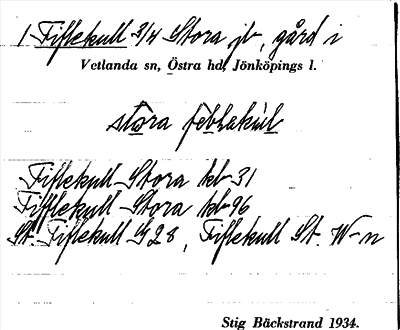 1 Fiflekull 3/4 Stora jb, gård i
Vetlanda sn, Östra hd, Jönköpings l.
stora feblekùl
Fiflekull Stora kb 31
Fifflekull Stora kb 96
St. Fiflekull G28, Fiflekull St. W-n
Stig Bäckstrand 1934.